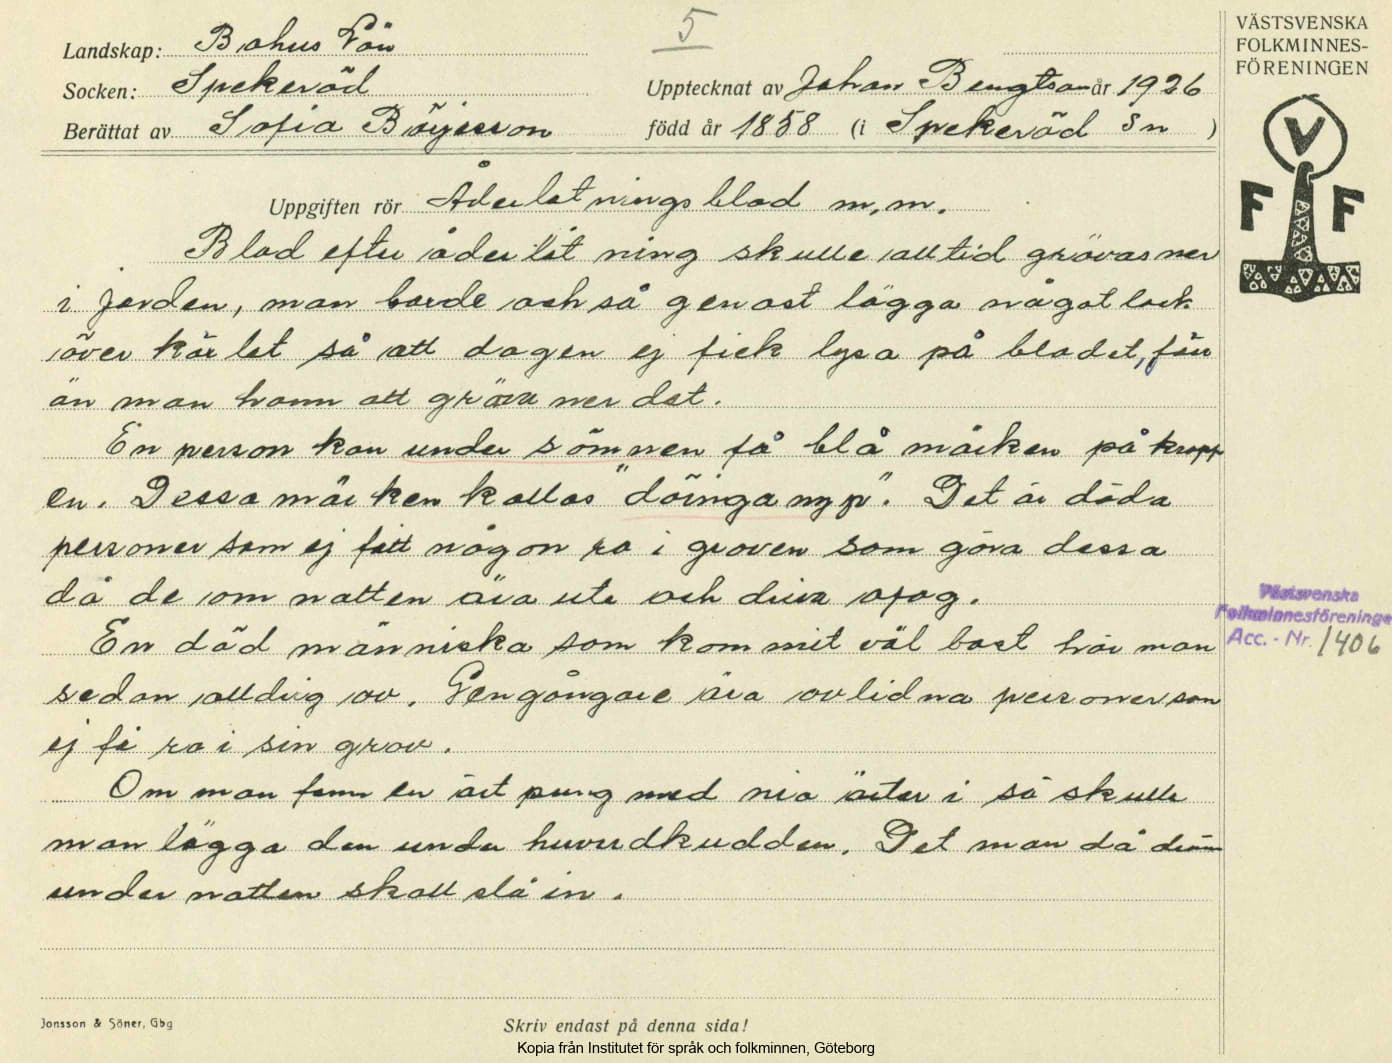 5
VÄSTSVENSKA
FOLKMINNES-
FÖRENINGEN
Landskap: Bohus Län
Socken: Spekeröd
Upptecknat av Johan Bengtson år 1926
Berättat av Sofia Börjesson
född år 1858 (i Spekeröd Sn )
V
F F
Uppgiften rör Åderlåtningsblod m,m.
Blod efter åderlåtning skulle alltid grävas ner
i jorden, man borde också genast lägga något lock
över kärlet så att dagen ej fick lysa på blodet, förr
än man hann att gräva ner det.
En person kan under sömnen få blå märken på kropp
en. Dessa märken kallas "döinganyp". Det är döda
personer som ej fått någon ro i graven som göra dessa
då de om natten ära ute och driva ofog.
En död människa som kommit väl bort hör man
sedan alldrig av. Gengångare ära avlidna personer som
ej få ro i sin grav.
Om man fann en ärt pung med nio ärter i så skulle
man lägga den under huvudkudden. Det man då dröm
under natten skall slå in.
Västsvenska
Folkminnesföreninge
Acc. - Nr. 1406
Jonsson & Söner, Gbg
Skriv endast på denna sida!
Kopia från Institutet för språk och folkminnen, Göteborg